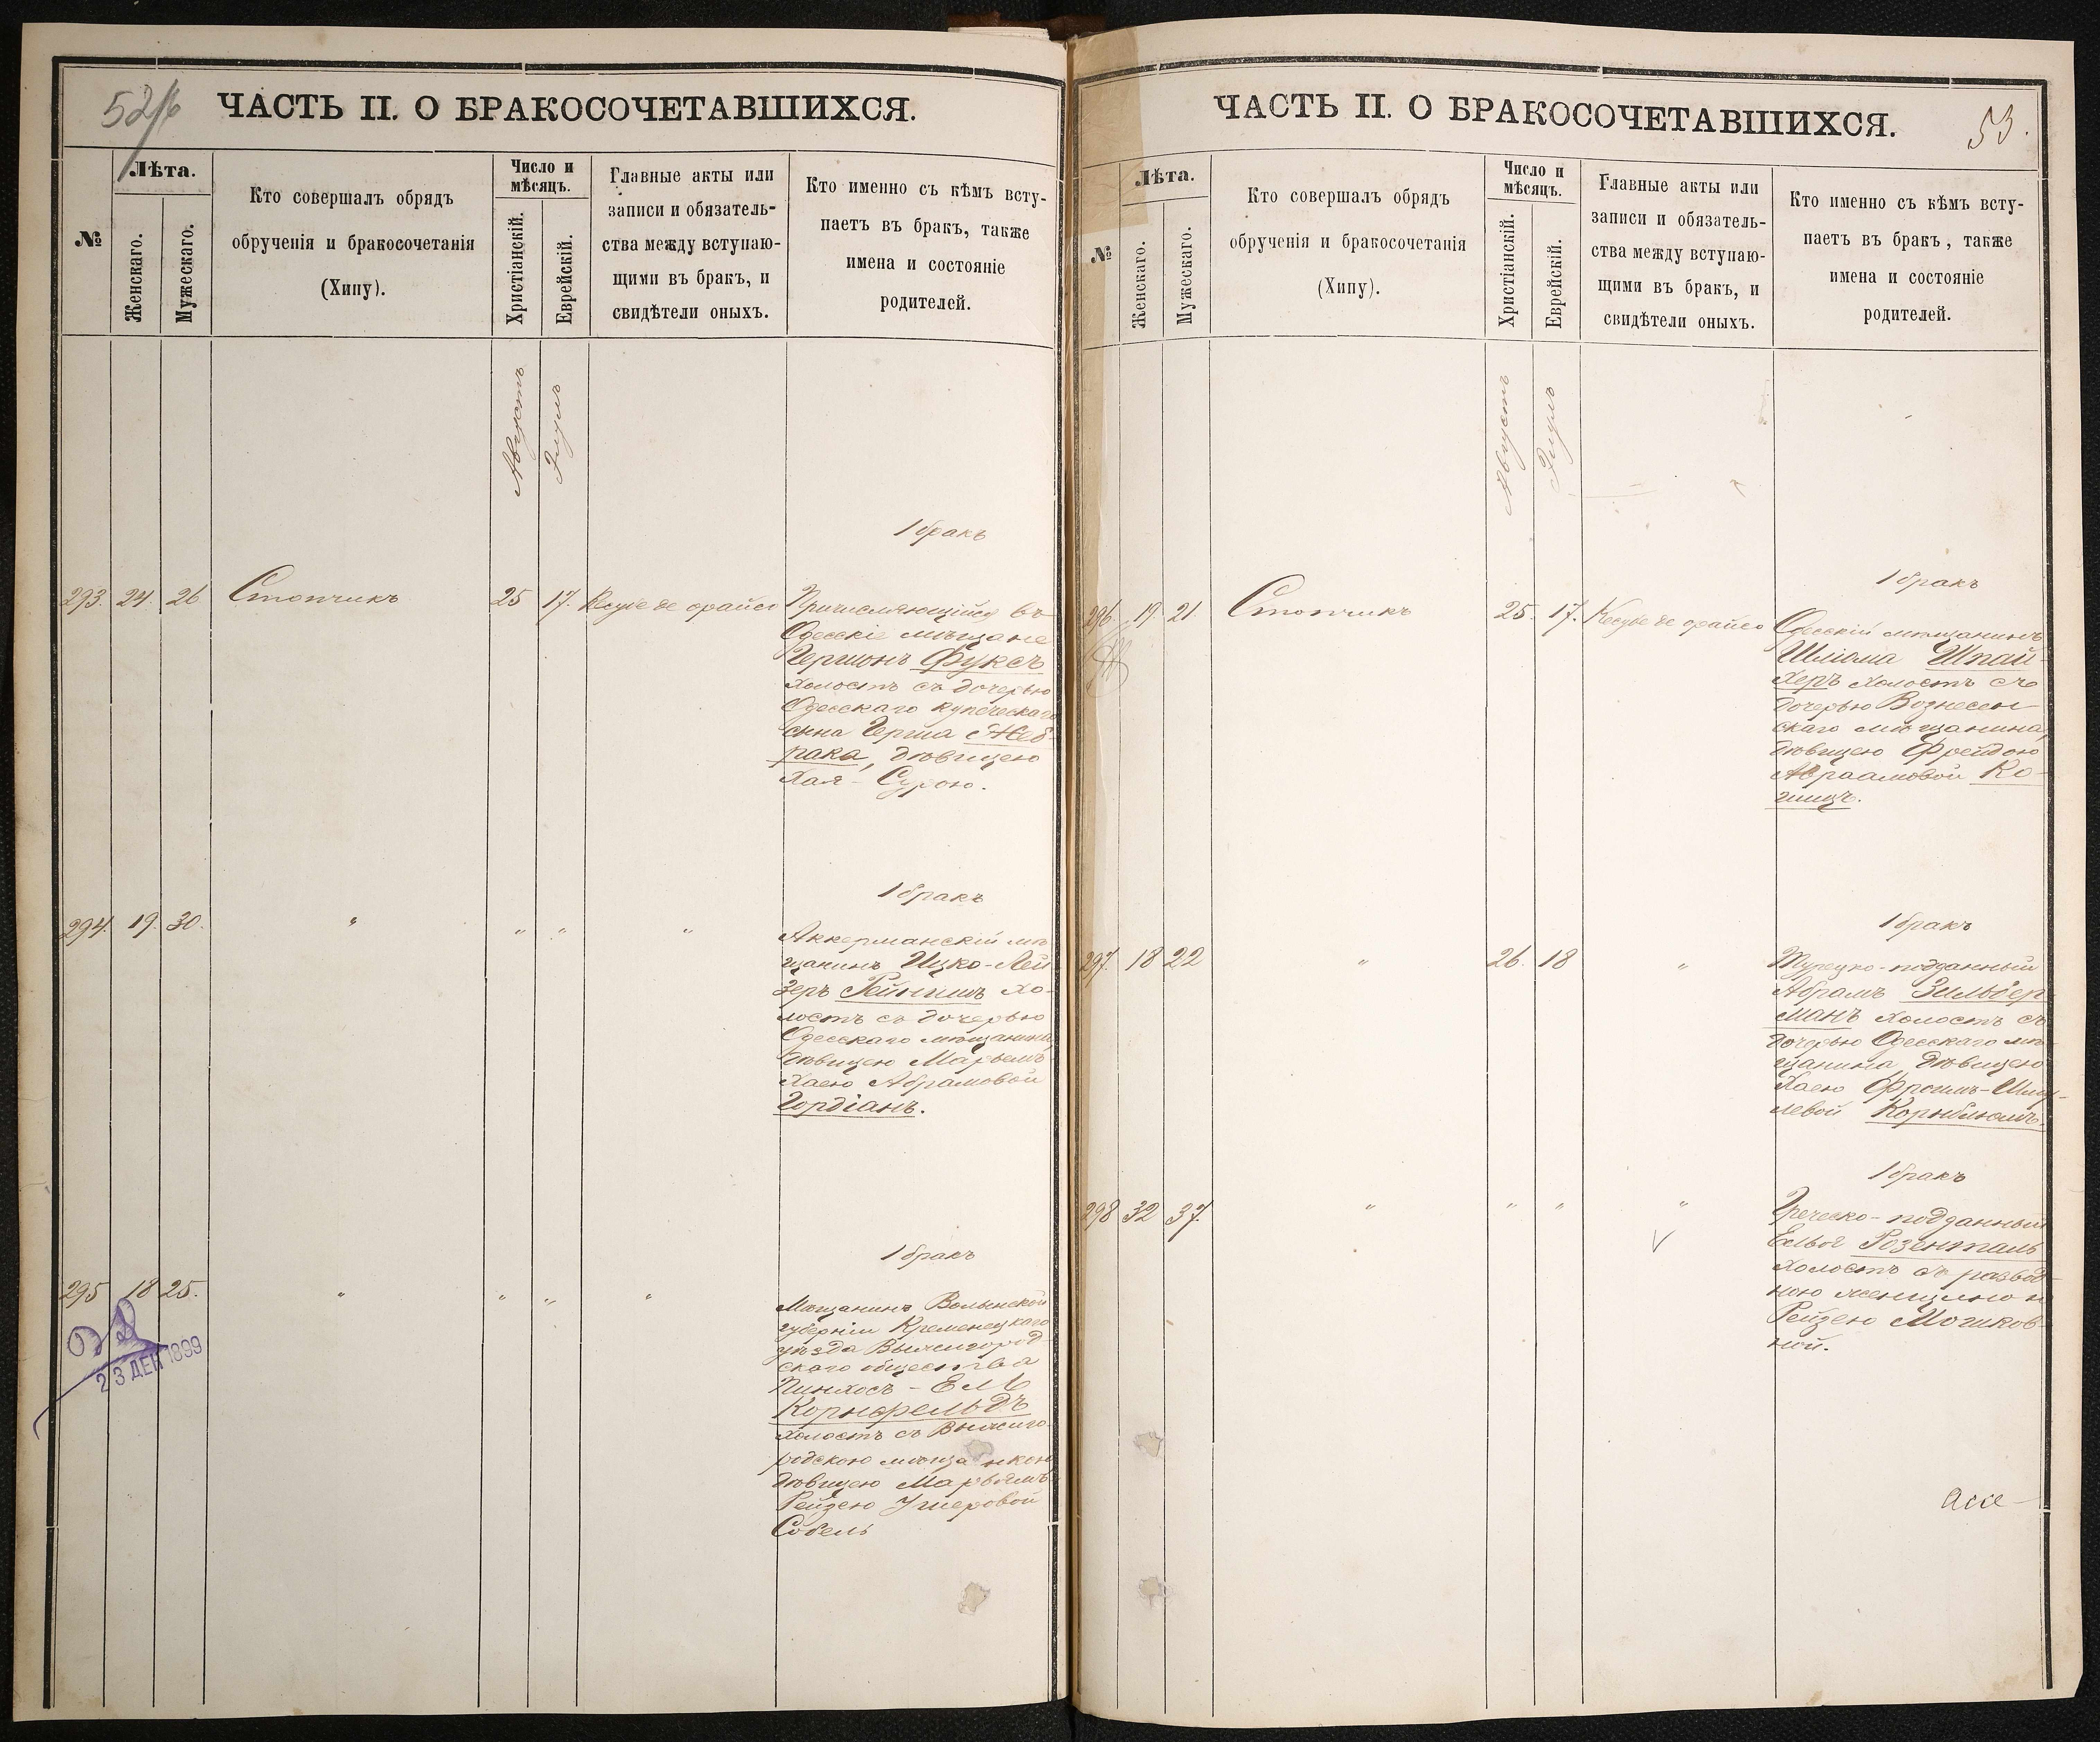 52/б
ЧАСТЬ II. О БРАКОСОЧЕТАВШИХСЯ.
№
Лѣта.
Женскаго.
Мужескаго.
Кто совершалъ обрядъ
обрученія и бракосочетанія
(Хипу).
Число и
мѣсяцъ.
Христіанскій.
Еврейскій.
Главные акты или
записи и обязатель-
ства между вступаю-
щими въ бракъ, и
свидѣтели оныхъ.
Кто именно съ кѣмъ всту-
паетъ въ бракъ, также
имена и состояніе
родителей.
Августъ
Элулъ
1 бракъ
293. 24. 26 Стопчикъ 25 17. Кесубе де орайсо
Причисляющійся въ
Одесскіе мѣщане
Гершонъ Фуксъ
холостъ съ дочерью
Одесскаго купеческаго
сына Герша Жеб-
рака, дѣвицею
Хая-Сурою.
1 бракъ
294. 19. 30. " " " "
Аккерманскій мѣ
щанинъ Ицко-Лей
зеръ Рейнишъ хо-
лостъ съ дочерью
Одесскаго мѣщанина
дѣвицею Марьемъ-
Хаею Абрамовой
Гордіанъ.
1 бракъ
295 18 25. " " " "
Мѣщанинъ Волынской
губерніи Кременецкаго
уѣзда Вышгород
скаго общества
Пинхосъ-Ель
Корнфельдъ
холостъ съ Вышго-
родскою мѣщанкою
дѣвицею Марьямъ-
Рейзею Ушеровой
Собель
23 ДЕК 1899
ЧАСТЬ II. О БРАКОСОЧЕТАВШИХСЯ.
53.
№
Лѣта.
Женскаго.
Мужескаго.
Кто совершалъ обрядъ
обрученія и бракосочетанія
(Хипу).
Число и
мѣсяцъ.
Христіанскій.
Еврейскій.
Главные акты или
записи и обязатель-
ства между вступаю-
щими въ бракъ, и
свидѣтели оныхъ.
Кто именно съ кѣмъ всту-
паетъ въ бракъ, также
имена и состояніе
родителей.
Августъ
Элулъ
1 бракъ
296. 19. 21. Стопчикъ 25. 17. Кесубе де орайсо
Одесскій мѣщанинъ
Шліома Шпай-
херъ холостъ съ
дочерью Вознесен-
скаго мѣщанина,
дѣвицею Фрейдою
Авраамовой Ко-
ганъ.
1 бракъ
297. 18 22 " 26. 18 "
Турецко-подданный
Абрамъ Зильбер-
манъ холостъ съ
дочерью Одесскаго мѣ-
щанина, дѣвицею
Хаею Фроимъ-Шму-
левой Корнблюмъ.
1 бракъ
298 32 37. " " " "
Греческо-подданный
Розенталь
холостъ съ развод-
ною женщиною
Рейзею Мошков-
ной.